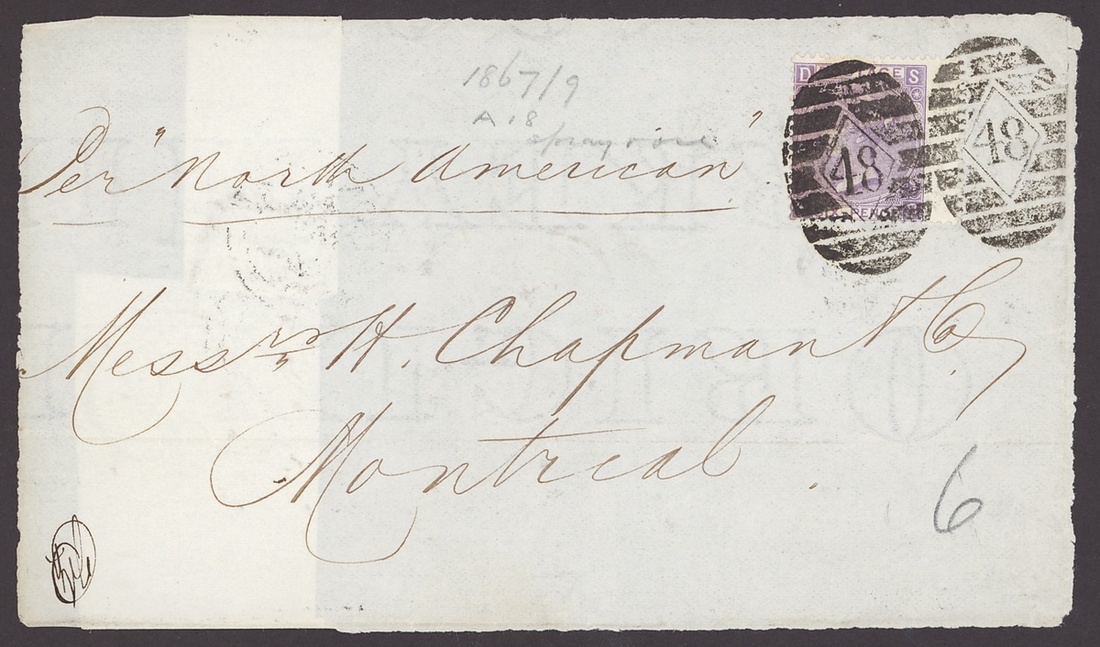 1867/9
A.18
spray rose
Per "North American"
D S
48 48
SIX PENCE
Messrs H. Chapman & Co
Montreal.
6